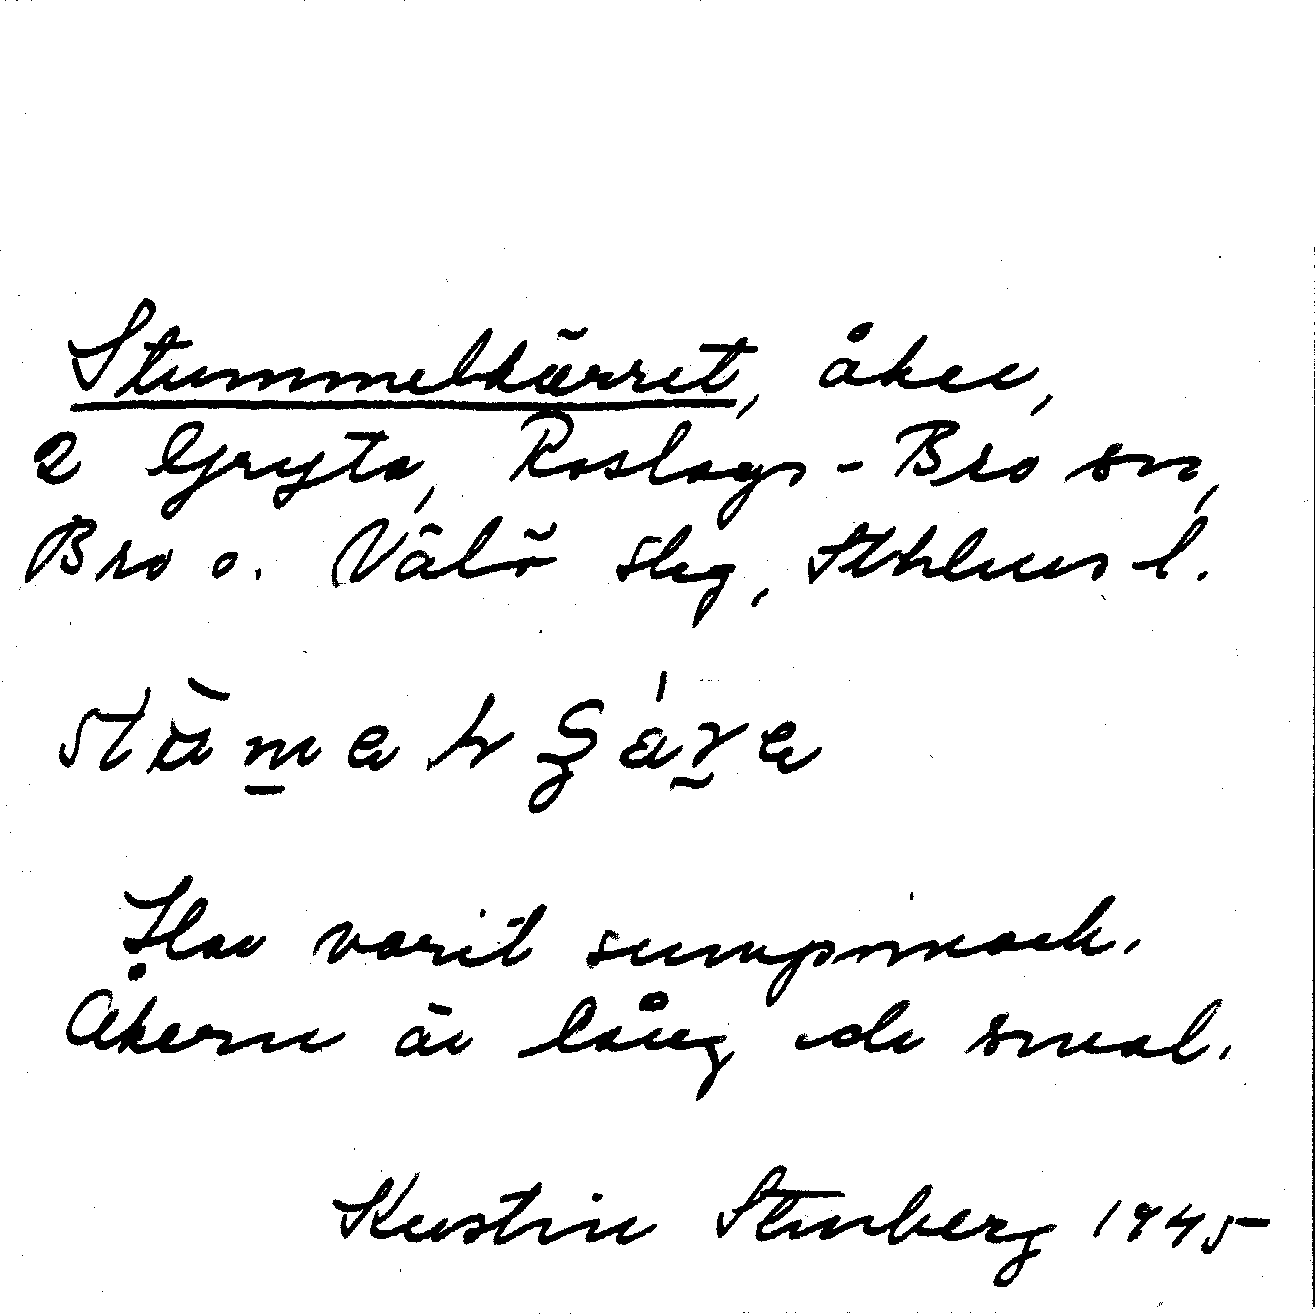 Stummelkärret, åker,
2 Gryta, Roslags-Bro sn,
Bro o. Vätö skg, Sthlms l.
Har varit sumpmark.
Åkern är lång och smal.
Kerstin Stenberg 1945